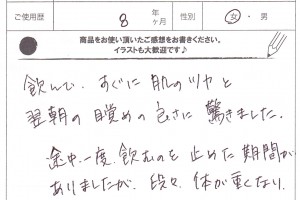 ご使用歴 8 年 ヶ月 性別 女・男
商品をお使い頂いたご感想をお書きください。
イラストも大歓迎です♪
飲んで、すぐに肌のツヤと
翌朝の目覚めの良さに驚きました。
途中一度、飲むのを止めた期間が
ありましたが、段々、体が重くなり、